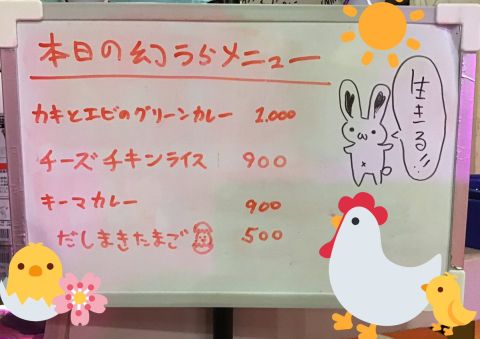 本日の幻うらメニュー
カキとエビのグリーンカレー 1,000
チーズチキンライス 900
キーマカレー 900
だしまきたまご 500
生きる!!